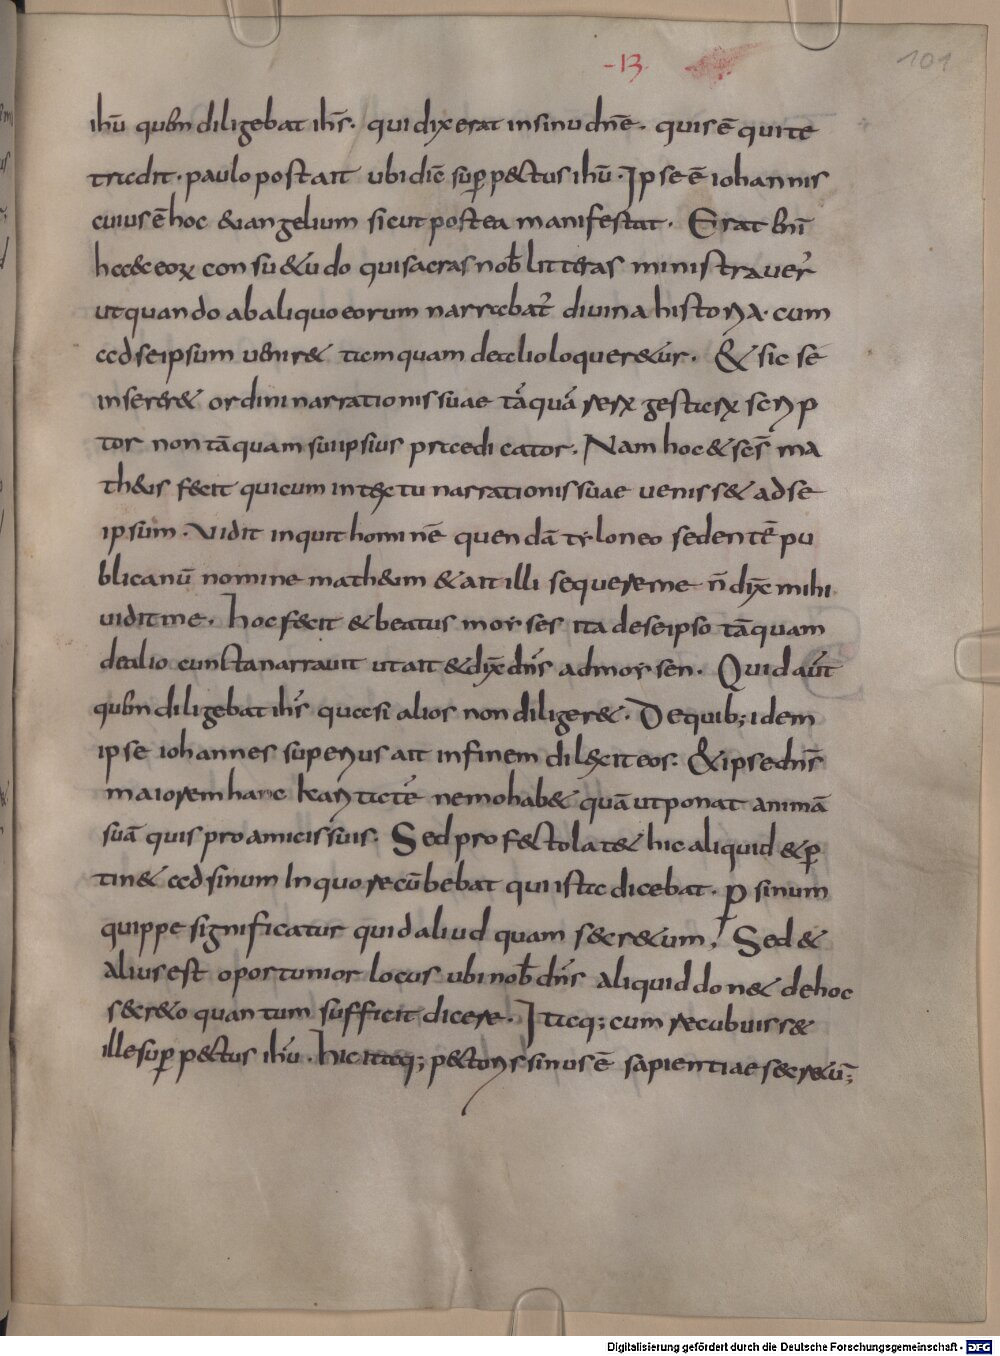 -13
101
ihū quem diligebat ihs̄. qui dixerat in sinu dn̄e. quis ē qui te
tradit. paulo post ait ubi dic̄ sup pectus ihū. Ipse ē iohannis
cuius ē hoc euangelium sicut postea manifestat. Erat eni
haec eoꝝ consuetudo qui sacras nob̄ litteras ministraver̄
ut quando ab aliquo eorum narrabat̄ divina historia. cum
ad seipsum veniret tamquam de alio loqueretur. & sic sē
insereret ordini narrationis suae tāquā rerū gestarū scrip
tor non tāquam sui ipsius praedicator. Nam hoc & scs̄ ma
theus fecit qui cum in textu narrationis suae venisset ad se
ipsum. Vidit inquit hominē quendā teloneo sedentē pu
blicanū nomine matheum & ait illi sequere me n̄ dix̄ mihi
vidit me. hoc fecit & beatus moyses ita de seipso tāquam
de alio cuncta narravit ut ait & dix̄ dn̄s ad moysen. Quid aūt
quem diligebat ihs̄ quasi alios non diligeret. De quib; idem
ipse iohannes superius ait in finem dilexit eos. & ipse dn̄s
maiorem hanc karitatē nemo habet quā ut ponat animā
suā quis pro amicis suis. Sed profecto latet hic aliquid & ꝑ
tinet ad sinum In quo recūbebat qui ista dicebat. P sinum
quippe significatur quid aliud quam secretum. Sed &
alius est oportunior locus ubi nob̄ dn̄s aliquid donet de hoc
secreto quantum sufficit dicere. Itaq; cum recubuisset
ille sup pectus ihū. hic itaq; pectoris sinus ē sapientiae secretū;
Digitalisierung gefördert durch die Deutsche Forschungsgemeinschaft - DFG